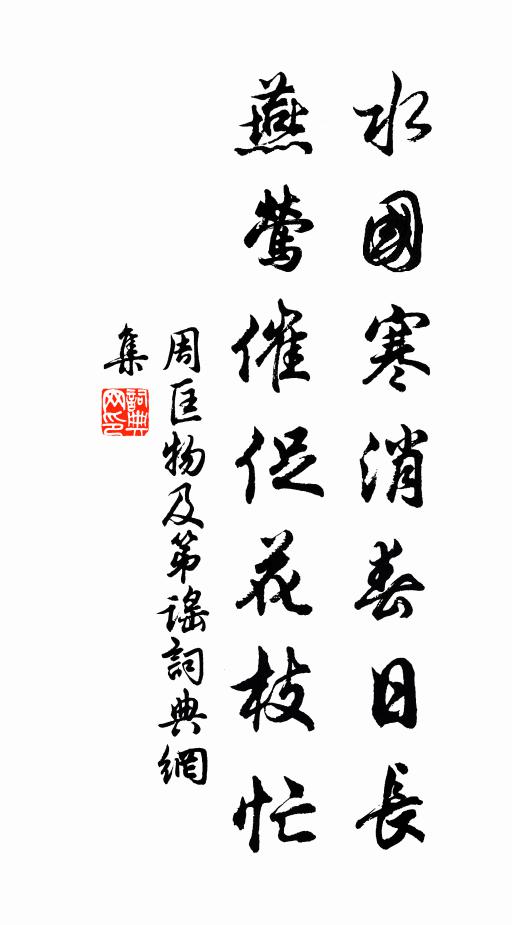 水國寒消春日長
燕鶯催促花枝忙
周匡物及第謠詞典網
集
詞典
网印